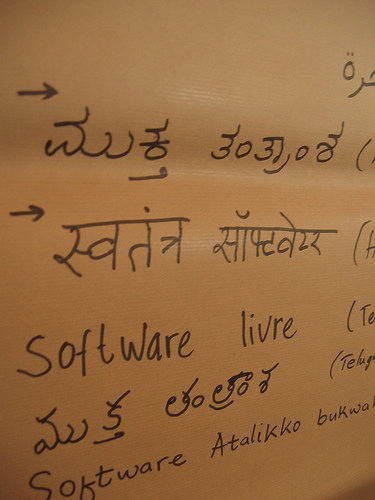 → ಮುಕ್ತ ತಂತ್ರಾಂಶ (
→ स्वतंत्र सॉफ्टवेयर (H
Software livre (Te
ముక్త తంత్రాంశ (Telugu
Software Atalikko bukwal